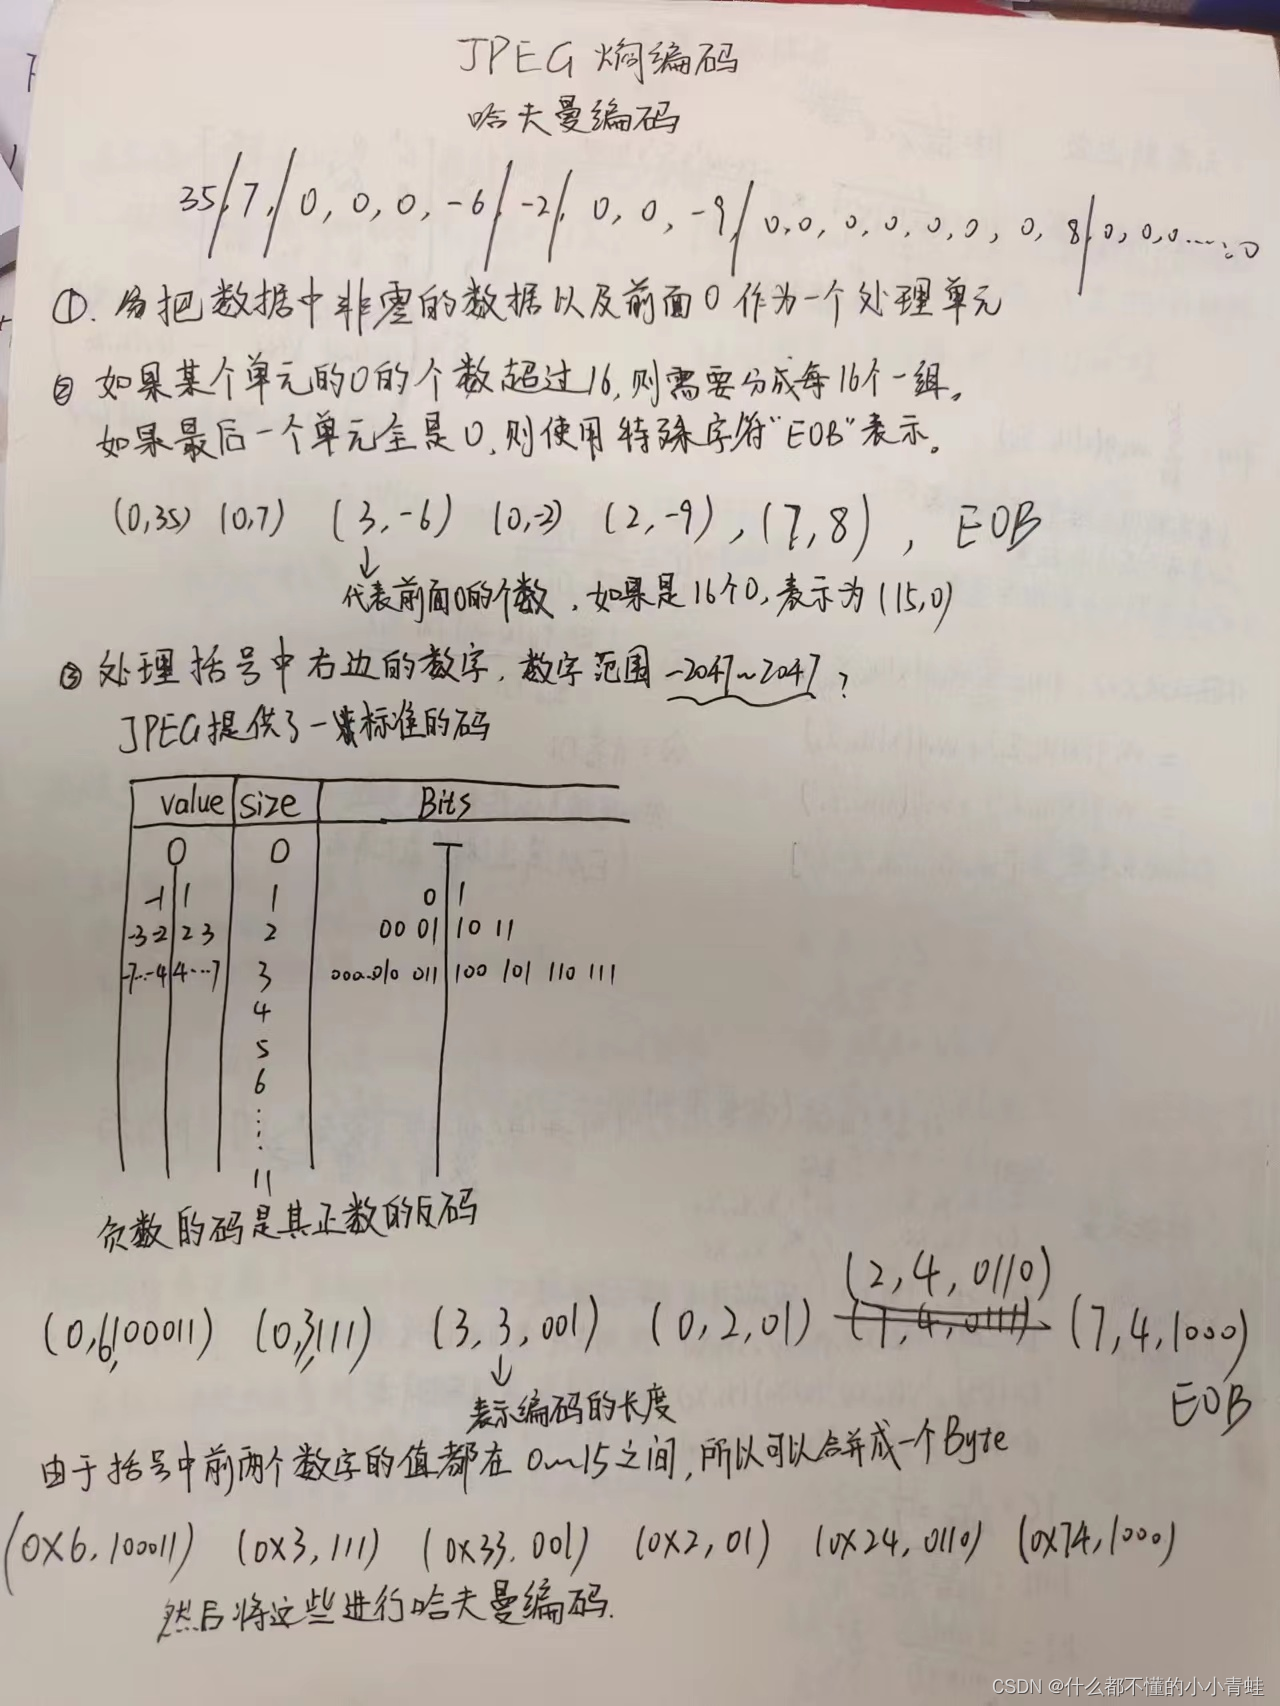 JPEG 熵编码
哈夫曼编码
35, 7, 0, 0, 0, -6, -2, 0, 0, -9, 0,0, 0, 0, 0, 0, 0, 8, 0, 0, 0……, 0
①. 把数据中非零的数据以及前面0作为一个处理单元
② 如果某个单元的0的个数超过16,则需要分成每16个一组。
如果最后一个单元全是0,则使用特殊字符"EOB"表示。
(0,35) (0,7) (3,-6) (0,-2) (2,-9), (7,8), EOB
代表前面0的个数,如果是16个0,表示为(15,0)
③ 处理括号中右边的数字,数字范围 -2047~2047?
JPEG提供了一张标准的码
value size Bits
0 0
-1 1 1 0 1
-3 -2 2 3 2 00 01 10 11
-7…-4 4…7 3 000…010 011 100 101 110 111
4
5
6
⋮
11
负数的码是其正数的反码
(2,4,0110)
(0,6,100011) (0,3,111) (3,3,001) (0,2,01) (7,4,0111) (7,4,1000)
表示编码的长度 EOB
由于括号中前两个数字的值都在0~15之间,所以可以合并成一个Byte
(0x6,100011) (0x3,111) (0x33,001) (0x2,01) (0x24,0110) (0x74,1000)
然后将这些进行哈夫曼编码.
CSDN @什么都不懂的小小青蛙